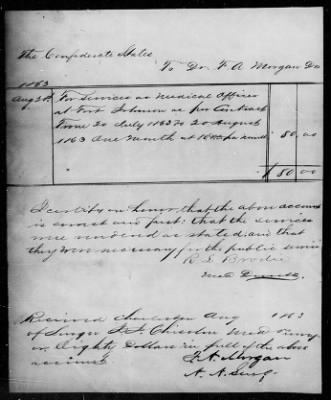 The Confederate States
To Dr. F. A. Morgan Dr
1863
Aug 20th For Services as Medical Officer
at Fort Johnson as per Contract
From 20 July 1863 to 20 August
1863 One Month at per month 80.00
$ 80.00
I certify on honor, that the above account
is correct and just: that the services
were rendered as stated, and that
they were necessary for the public service
R. L. Brodie
Med
Received Charleston Aug 1863
of Surgeon J. J. Chisolm Med Purvey
or Eighty Dollars in full of the above
account
F. A. Morgan
A. A. Surg